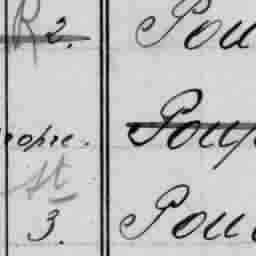 R 2. Pou
ropre. Poup
St
3. Pou